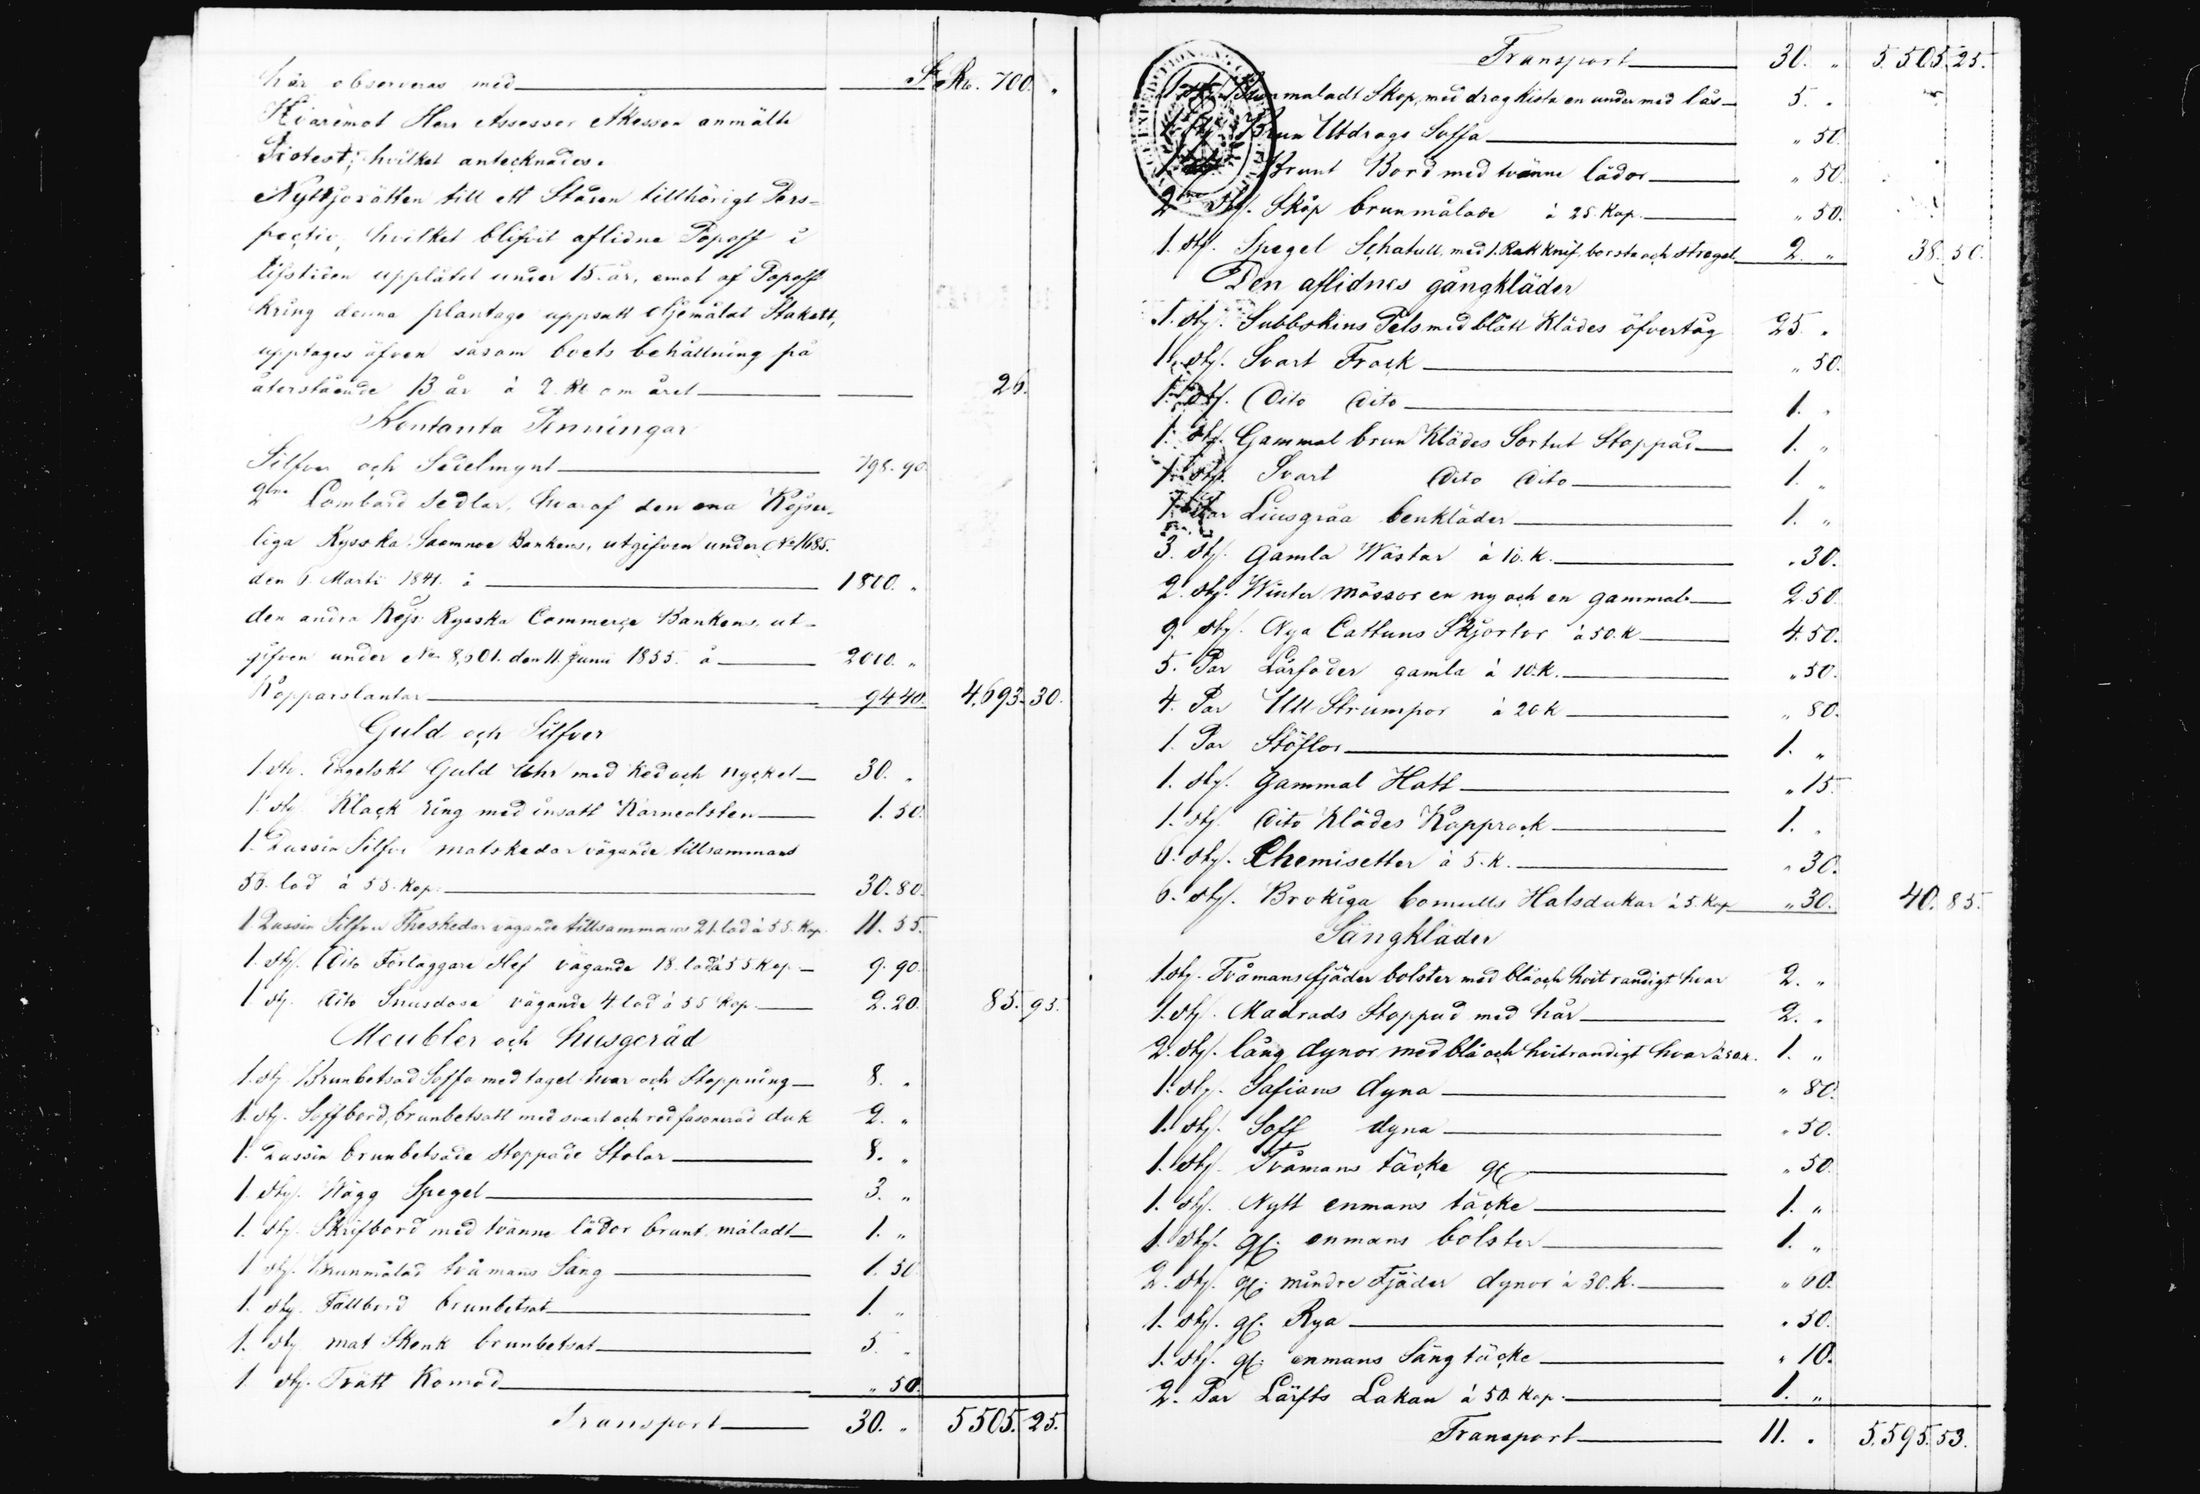 här observeras med S:r Rub. 700. "
Hvaremot Herr Assessor Åkesson anmälte
Protest, hvilket antecknades.
Nyttjorätten till ett Staden tillhörigt Pers-
pectiv, hvilket blifvit aflidne Popoff i
lifstiden upplåtet under 15. år, emot af Popoff
kring denna plantage uppsatt Oljemålat Stakett,
upptages äfven såsom boets behållning på
återstående 13 år à 2. R:l om året 26.
Kontanta Penningar
Silfver och Sedelmynt 798. 90.
2ne Lombard Sedlar, hvaraf den ena Kejser-
liga Rysska Bankens, utgifven under No 1685.
den 6. Marti 1841. å 1800. "
den andra Kejs. Rysska Commerce Bankens, ut-
gifven under No 8,601. den 11. Junii 1855. å 2000. "
Kopparslantar 94 40. 4,693. 30.
Guld och Silfver
1. sty. Engelskt Guld Uhr med Ked och nyckel 30. "
1. sty. Klack ring med insatt Karneolsten 1. 50.
1. Dussin Silfver matskedar vägande tillsammans
56. lod à 55. Kop. 30. 80.
1. Dussin Silfver Theskedar vägande tillsammans 21. lod à 55. Kop. 11. 55.
1. sty. Dito Förläggare Slef vägande 18. lod à 55 Kop. 9. 90.
1. sty. dito Snusdosa vägande 4 lod à 55 Kop. 2. 20. 85. 95.
Meubler och husgeråd
1. sty. Brunbetsad Soffa med tagel hvar och Stoppning 8. "
1. sty. Soffbord, brunbetsatt med svart och röd fasonerad duk 2. "
1. Dussin brunbetsade stoppade Stolar 8. "
1. sty. Wägg Spegel 3. "
1. sty. Skrifbord med tvänne lådor brunt måladt 1. "
1. sty. Brunmålad tvåmans Säng 1. 50
1. sty. Fällbord brunbetsat 1. "
1. sty. mat Skenk brunbetsat 5. "
1. sty. Trätt Komod " 50.
Transport 30. " 5505. 25.
Transport 30. " 5.505. 25.
1. Brunmåladt Skåp, med dragkista en under med lås 5. "
1. sty. Brun Utdrags Soffa " 50.
Brunt Bord med tvänne lådor " 50.
2 sty. Skåp brunmålade à 25. Kop. " 50.
1. sty. Spegel Schatull, med 1. Rakknif, borste och stragel 2. " 38. 50.
Den aflidnes gångkläder
1. sty. Subbskins Pels med blått Klädes öfvertåg 25. "
1. sty. Svart Frack " 50.
1. sty. Dito dito 1. "
1. sty. Gammal brun Klädes Sortut Stoppad 1. "
1. sty. Svart dito dito 1. "
1. Par Liusgråa benkläder 1. "
3. sty. gamla Wästar à 10. K. " 30.
2. sty. Winter mössor en ny och en gammal 2. 50.
9. sty. Nya Cattuns Skjortor à 50. K 4. 50.
5. Par Lärfoder gamla à 10. K. " 50.
4. Par Ull Strumpor à 20 K " 80.
1. Par Stöflor 1. "
1. sty. gammal Hatt " 15.
1. sty. dito Klädes Kapprock 1. "
6. sty. Chemisetter à 5. K. " 30.
6. sty. Brokiga bomulls Halsdukar à 5. Kop " 30. 40. 85.
Sängkläder
1. sty. Tvåmans fjäder bolster med blå och hvit randigt hvar 2. "
1. sty. Madrads Stoppad med hår 2. "
2. sty. lång dynor med blå och hvitrandigt hvar à 50. K. 1. "
1. sty. Safians dyna " 80.
1. sty. Soff dyna " 50.
1. sty. Tvåmans täcke gl. " 50.
1. sty. Nytt enmans täcke 1. "
1. sty. gl. enmans bolster 1. "
2. sty. gl. mindre Fjäder dynor à 30. K. " 60.
1. sty. gl. Rya " 50.
1. sty. gl. enmans Säng täcke " 10.
2. Par Lärfts Lakan à 50. Kop. 1. "
Transport 11. " 5.595. 53.